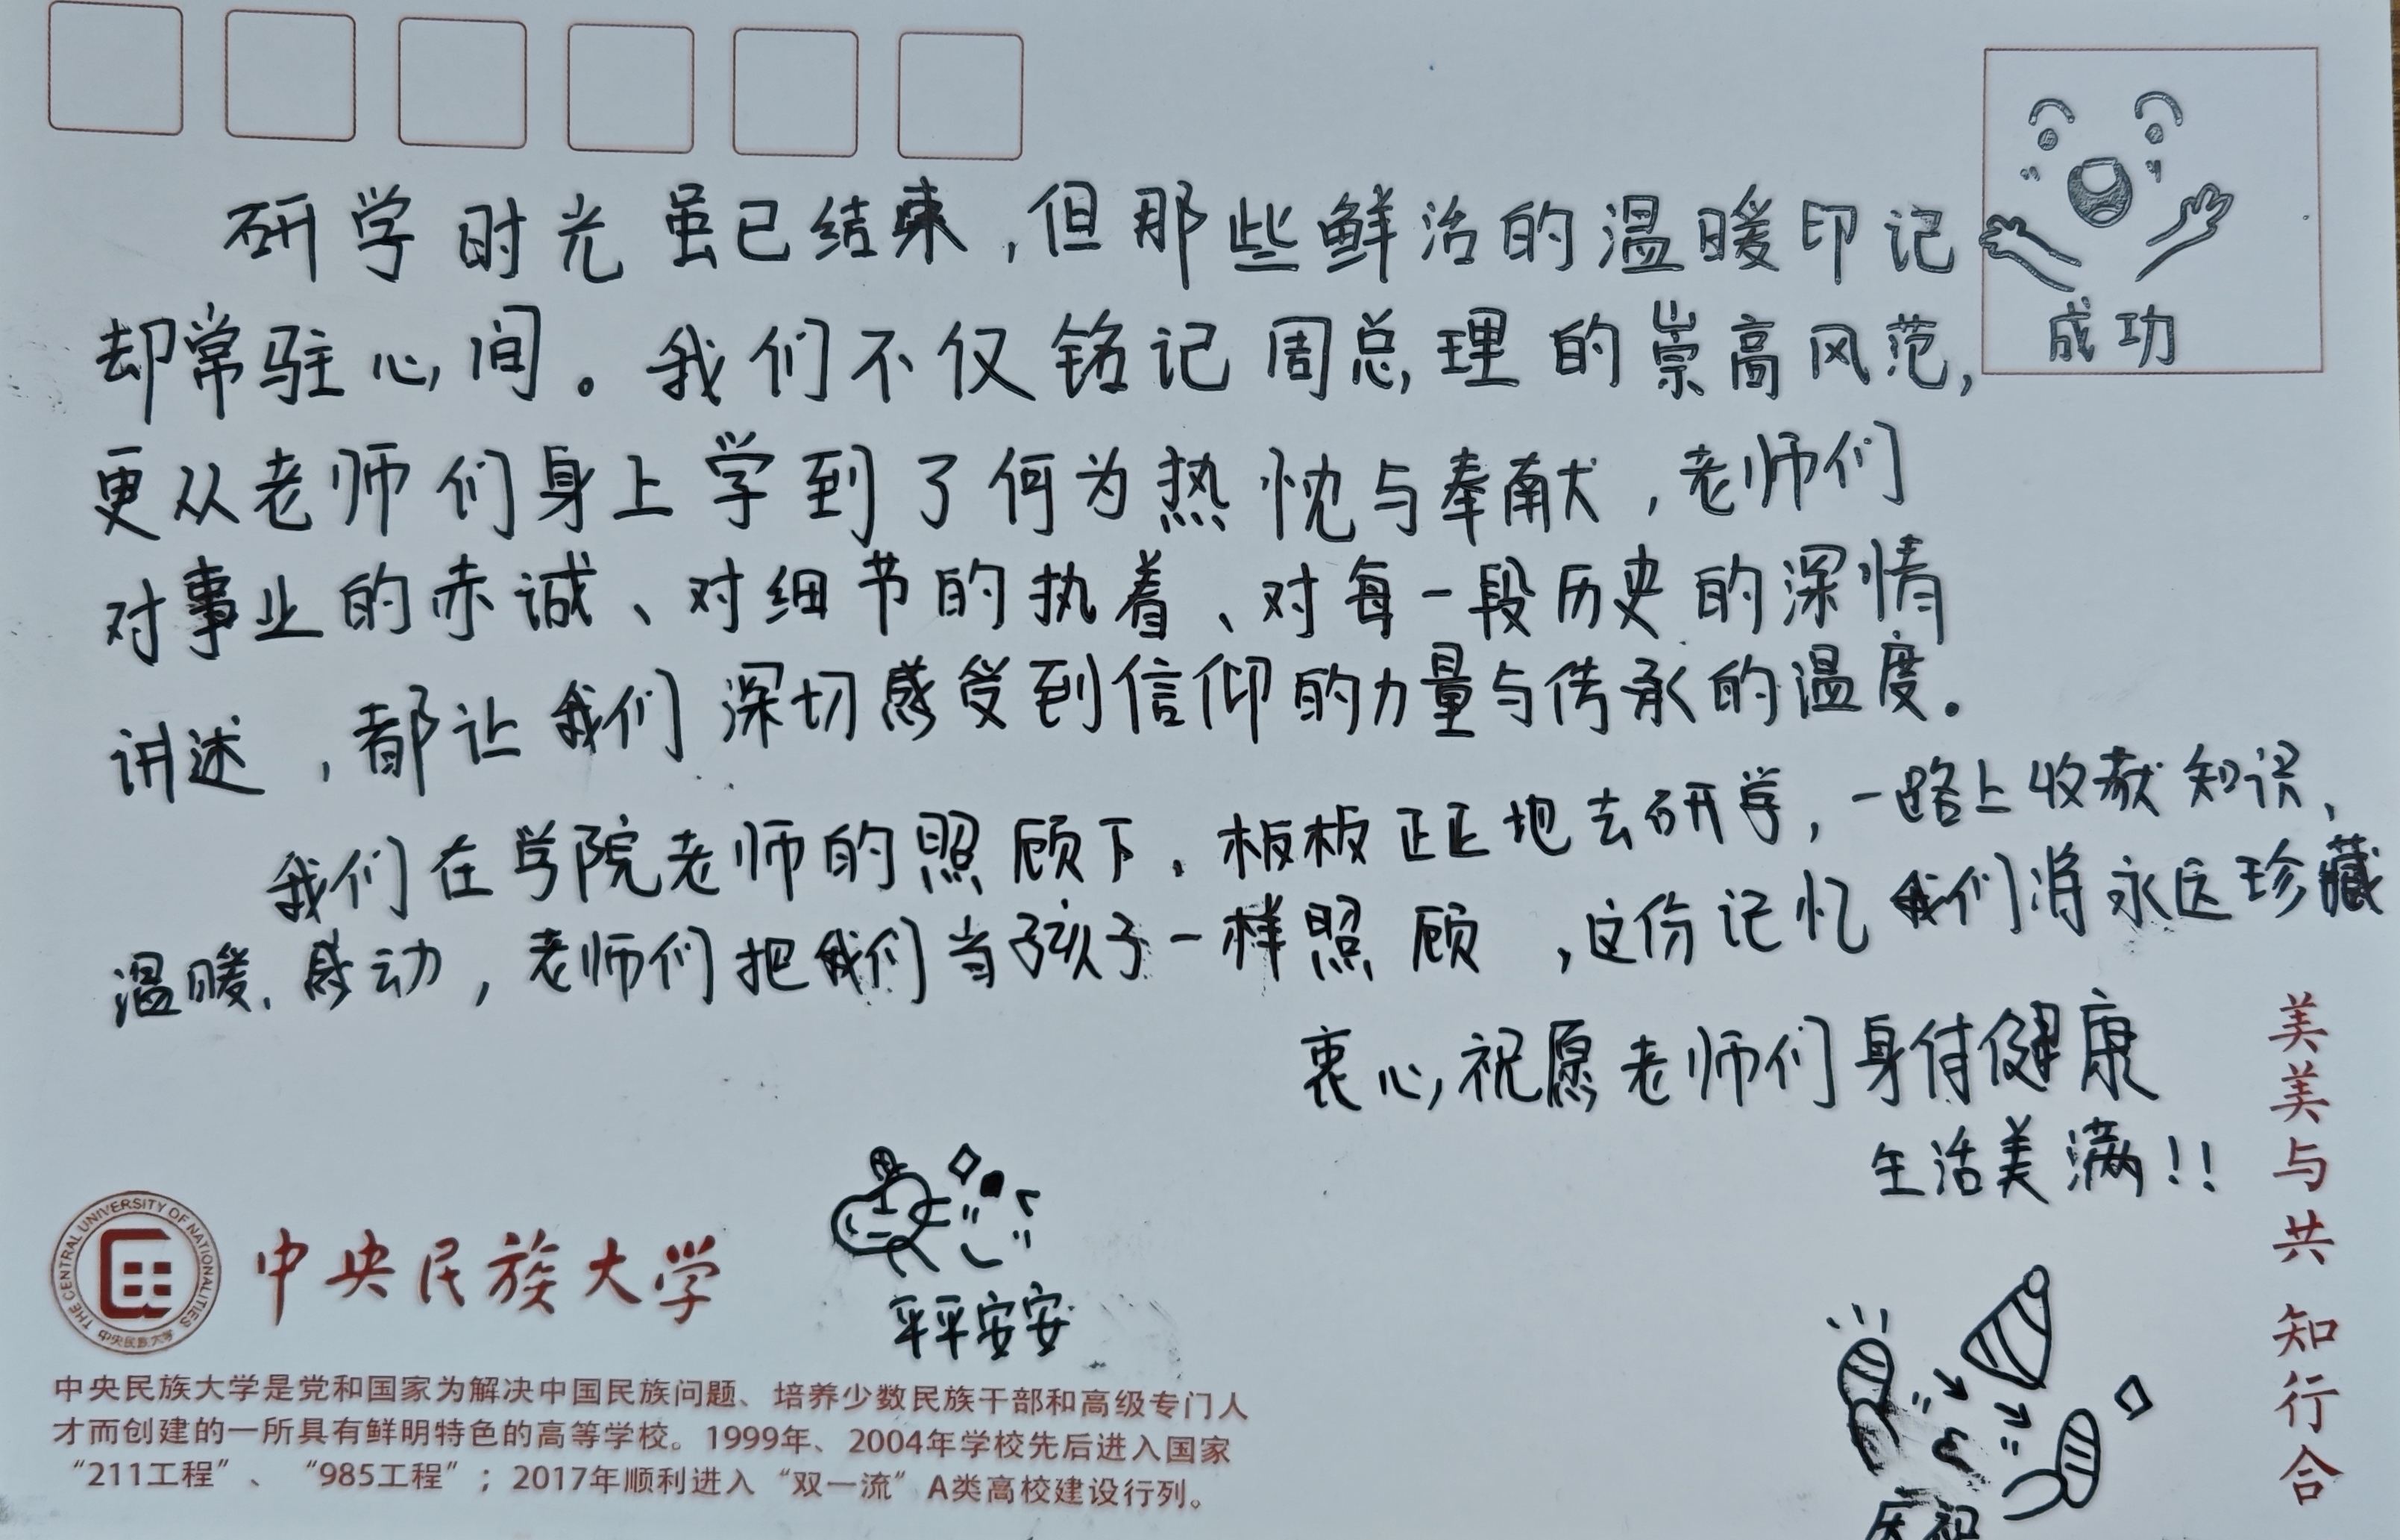 研学时光虽已结束，但那些鲜活的温暖印记
却常驻心间。我们不仅铭记周总理的崇高风范，
成功
更从老师们身上学到了何为热忱与奉献，老师们
对事业的赤诚、对细节的执着、对每一段历史的深情
讲述，都让我们深切感受到信仰的力量与传承的温度。
我们在学院老师的照顾下，板板正正地去研学，一路上收获知识、
温暖、感动，老师们把我们当孩子一样照顾，这份记忆我们将永远珍藏
衷心祝愿老师们身体健康
生活美满!!
美美与共 知行合
THE CENTRAL UNIVERSITY OF NATIONALITIES
中央民族大学
中央民族大学
平平安安
中央民族大学是党和国家为解决中国民族问题、培养少数民族干部和高级专门人
才而创建的一所具有鲜明特色的高等学校。1999年、2004年学校先后进入国家
“211工程”、“985工程”；2017年顺利进入“双一流”A类高校建设行列。
庆祝